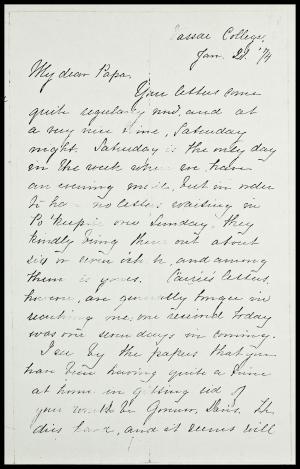 Vassar College,
Jan. 22. '74
My dear Papa.
Your letters come
quite regularly now, and at
a very nice time, Saturday
night. Saturday is the only day
in the week when we have
an evening mail, but in order
to have no letters waiting in
Po'keepsie over Sunday, they
kindly bring them out about
six or seven o'clock, and among
them is yours. Carrie's letters,
however, are generally longer in
reaching me, one received today
was one seven days in coming.
I see by the papers that you
have been having quite a time
at home in getting rid of
your Gov. Davis. He
dies hard, and it seems will